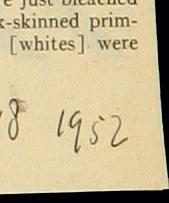 just bleached
-skinned prim-
[whites] were
8 1952